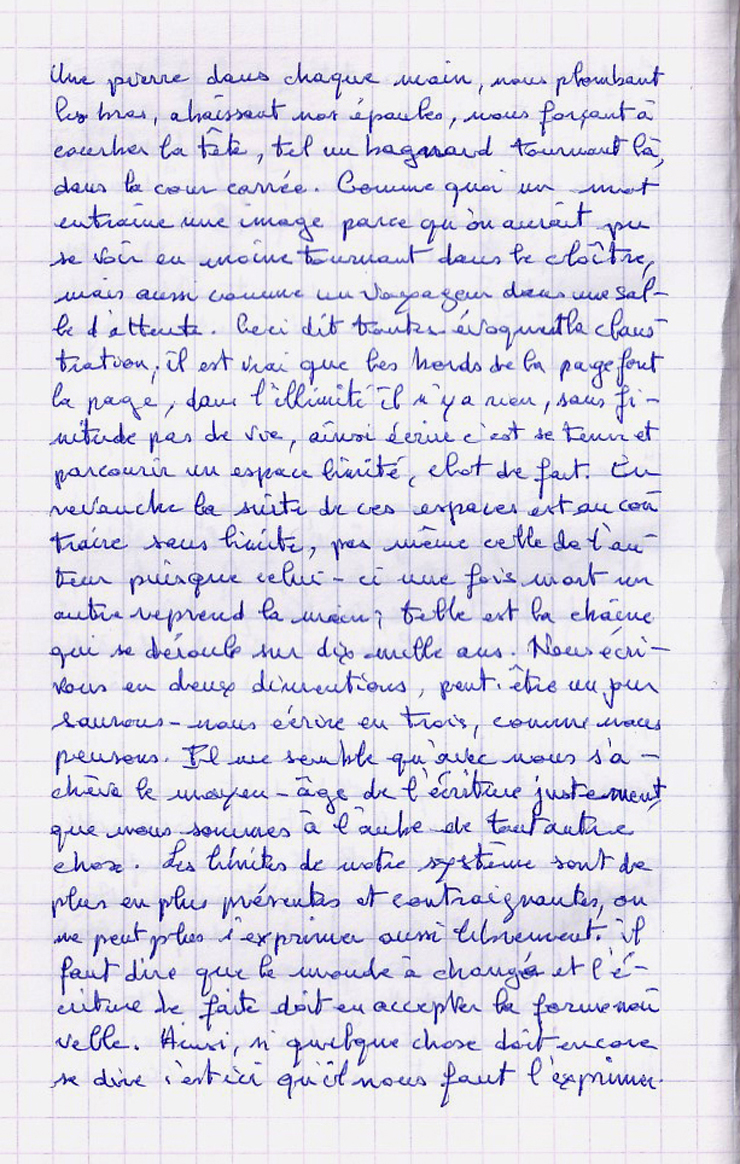 Une pierre dans chaque main, nous plombant
les bras, abaissant nos épaules, nous forçant à
courber la tête, tel un bagnard tournant là,
dans la cour carrée. Comme quoi un mot
entraine une image parce qu'on aurait pu
se voir en moine tournant dans le cloître,
mais aussi comme un voyageur dans une sal-
le d'attente. Ceci dit toutes évoquent la claus
tration, il est vrai que les bords de la page font
la page, dans l'illimité il n'y a rien, sans fi-
nitude pas de vie, ainsi écrire c'est se tenir et
parcourir un espace limité, clot de fait. En
revanche la suite de ces espaces est au con
traire sans limite, pas même celle de l'au-
teur puisque celui-ci une fois mort un
autre reprend la main; telle est la chaine
qui se déroule sur dix mille ans. Nous écri-
vons en deux dimentions, peut-être un jour
saurons-nous écrire en trois, comme nous
pensons. Il me semble qu'avec nous s'a-
chève le moyen-âge de l'écriture justement
que nous sommes à l'aube de tout autre
chose. Les limites de notre système sont de
plus en plus présentes et contraignantes, on
ne peut plus s'exprimer aussi librement. il
faut dire que le monde à changé et l'é-
criture de faite doit en accepter la forme nou
velle. Ainsi, si quelque chose doit encore
se dire c'est ici qu'il nous faut l'exprimer.